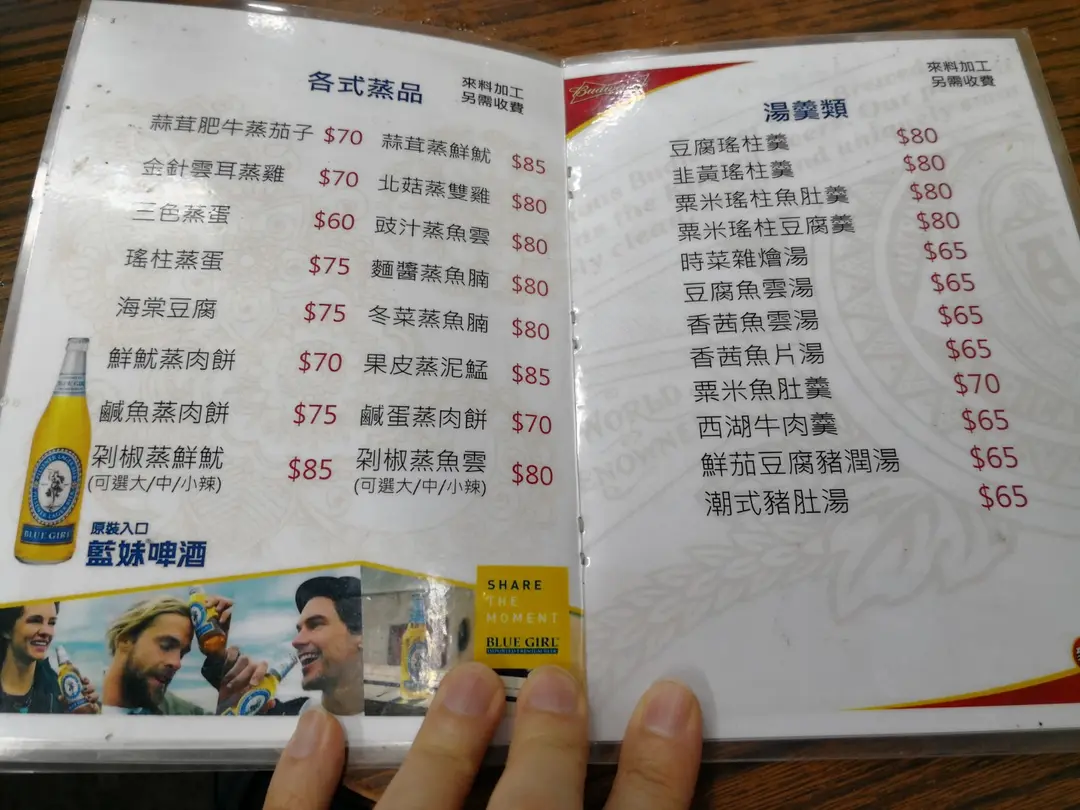 各式蒸品
來料加工
另需收費
蒜茸肥牛蒸茄子 $70
金針雲耳蒸雞 $70
三色蒸蛋 $60
瑤柱蒸蛋 $75
海棠豆腐 $75
鮮魷蒸肉餅 $70
鹹魚蒸肉餅 $75
剁椒蒸鮮魷 $85
(可選大/中/小辣)
蒜茸蒸鮮魷 $85
北菇蒸雙雞 $80
豉汁蒸魚雲 $80
麵醬蒸魚腩 $80
冬菜蒸魚腩 $80
果皮蒸泥鯭 $85
鹹蛋蒸肉餅 $70
剁椒蒸魚雲 $80
(可選大/中/小辣)
BLUE GIRL
原裝入口
藍妹啤酒
SHARE
THE
MOMENT
BLUE GIRL
來料加工
另需收費
湯羹類
豆腐瑤柱羹 $80
韭黃瑤柱羹 $80
粟米瑤柱魚肚羹 $80
粟米瑤柱豆腐羹 $80
時菜雜燴湯 $65
豆腐魚雲湯 $65
香茜魚雲湯 $65
香茜魚片湯 $65
粟米魚肚羹 $70
西湖牛肉羹 $65
鮮茄豆腐豬潤湯 $65
潮式豬肚湯 $65
WORLD